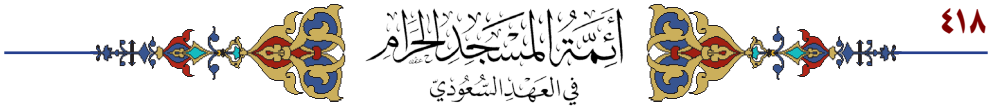 ٤١٨
أَئِمَّةُ المَسْجِدِ الحَرَامِ
فِي العَهْدِ السُّعُودِيِّ